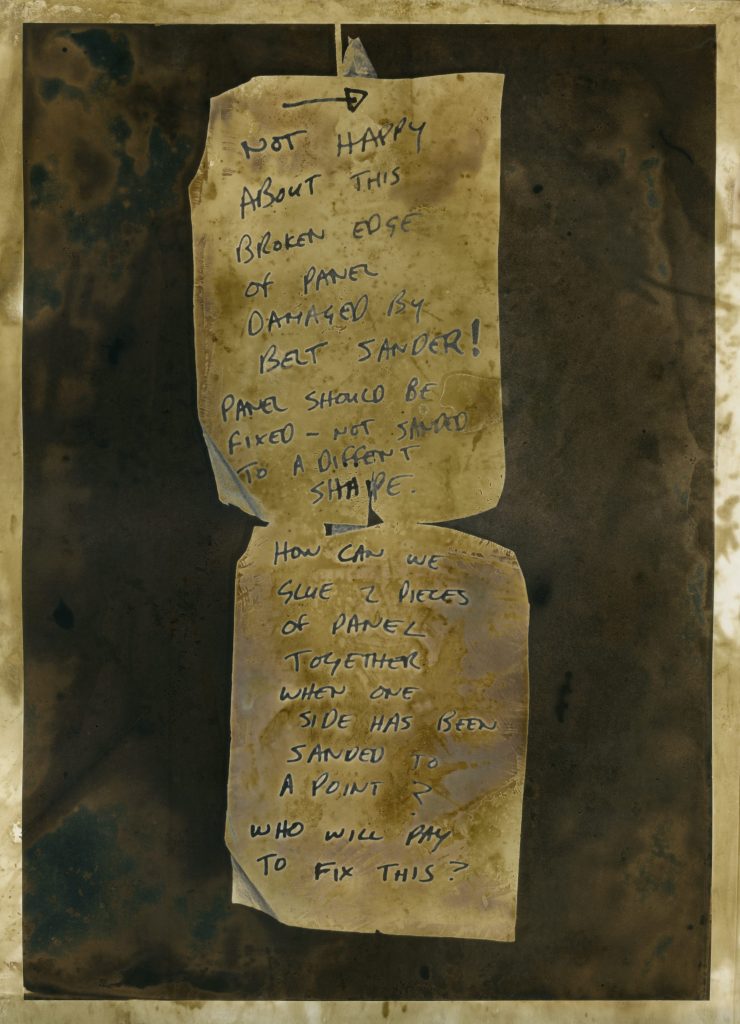 NOT HAPPY
ABOUT THIS
BROKEN EDGE
OF PANEL
DAMAGED BY
BELT SANDER!
PANEL SHOULD BE
FIXED - NOT SANDED
TO A DIFFENT
SHAPE.
HOW CAN WE
GLUE 2 PIECES
OF PANEL
TOGETHER
WHEN ONE
SIDE HAS BEEN
SANDED TO
A POINT?
WHO WILL PAY
TO FIX THIS?